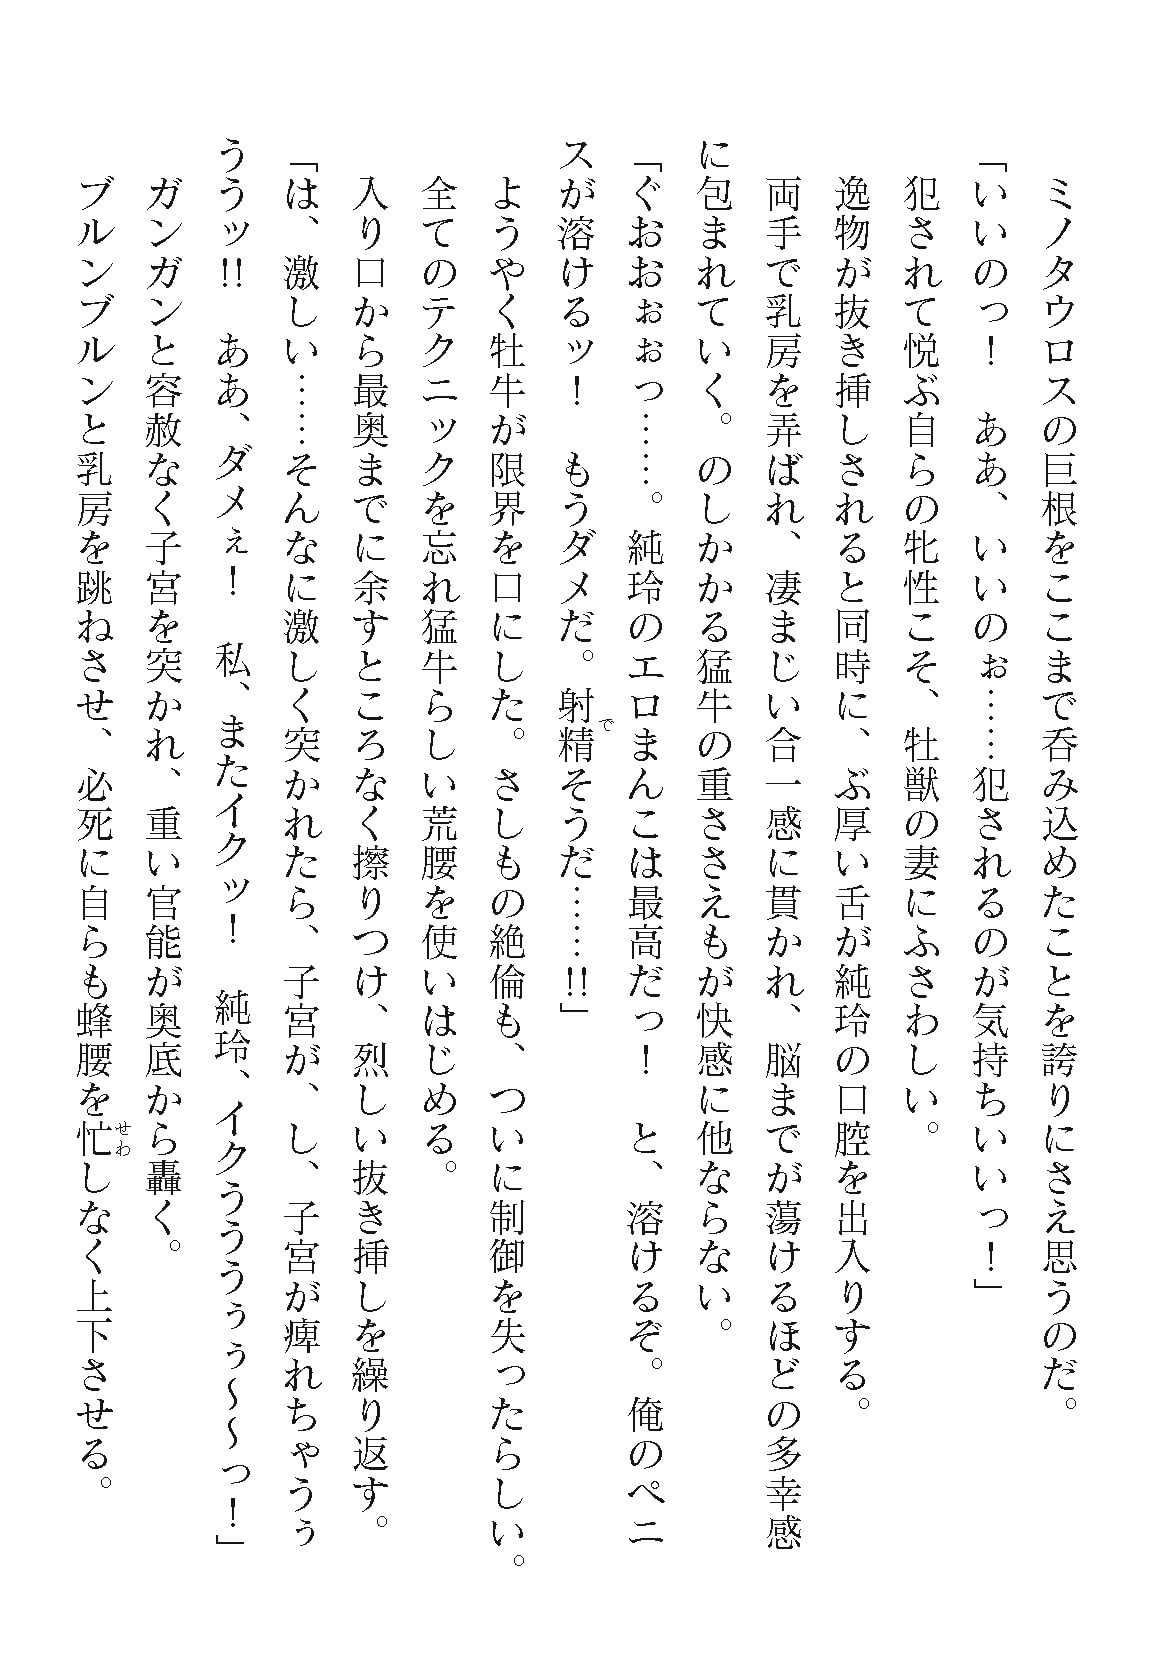 ミノタウロスの巨根をここまで呑み込めたことを誇りにさえ思うのだ。
「いいのっ！　ああ、いいのぉ……犯されるのが気持ちいいっ！」
犯されて悦ぶ自らの牝性こそ、牡獣の妻にふさわしい。
逸物が抜き挿しされると同時に、ぶ厚い舌が純玲の口腔を出入りする。
両手で乳房を弄ばれ、凄まじい合一感に貫かれ、脳までが蕩けるほどの多幸感
に包まれていく。のしかかる猛牛の重ささえもが快感に他ならない。
「ぐおおぉぉっ……。純玲のエロまんこは最高だっ！　と、溶けるぞ。俺のペニ
スが溶けるッ！　もうダメだ。射精そうだ……!!」
で
ようやく牡牛が限界を口にした。さしもの絶倫も、ついに制御を失ったらしい。
全てのテクニックを忘れ猛牛らしい荒腰を使いはじめる。
入り口から最奥までに余すところなく擦りつけ、烈しい抜き挿しを繰り返す。
「は、激しい……そんなに激しく突かれたら、子宮が、し、子宮が痺れちゃうぅ
ううッ!!　ああ、ダメぇ！　私、またイクッ！　純玲、イクうううぅぅ～～っ！」
ガンガンと容赦なく子宮を突かれ、重い官能が奥底から轟く。
ブルンブルンと乳房を跳ねさせ、必死に自らも蜂腰を忙しなく上下させる。
せわ